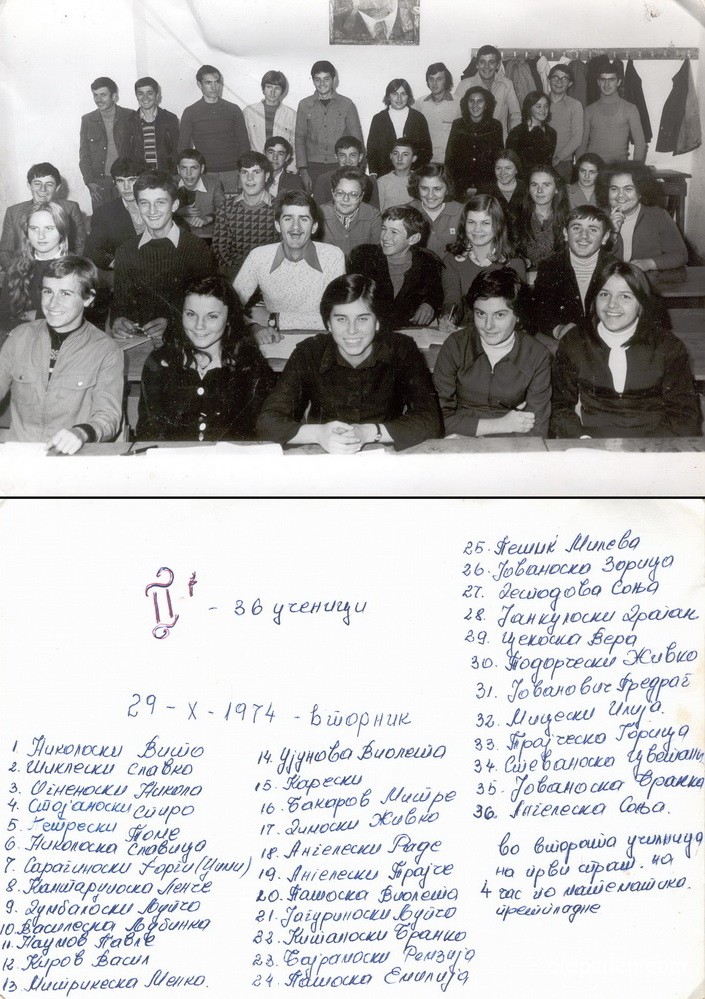 II 4 - 36 ученици
29 - X - 1974 - вторник
1. Николоски Висто
2. Шиклески Славко
3. Огненоски Никола
4. Стојаноски Спиро
5. Петрески Томе
6. Николоска Славица
7. Сарагиноски Ѓорѓи (Цули)
8. Кантарџиоска Ленче
9. Думбалоски Љупчо
10. Василеска Љубинка
11. Наумов Павле
12. Киров Васил
13. Митрикеска Менко.
14. Ујунова Виолета
15. Карески
16. Бакаров Митре
17. Димоски Живко
18. Ангелески Раде
19. Ангелески Трајче
20. Пашоска Виолета
21. Јагуриноски Љупчо
22. Китаноски Бранко
23. Бајрамоски Ремзија
24. Пашоска Емилија
25. Пешиќ Милева
26. Јованоска Зорица
27. Десподова Соња
28. Јанкулоски Драган
29. Цекоска Вера
30. Тодорчески Живко
31. Јовановиќ Предраг
32. Мицески Илија.
33. Трајческа Горица
34. Стеваноска Цветанк
35. Јованоска Вранка
36. Ангелеска Соња.
во втората училница
на први спрат. на
4 час по математика.
претпладне